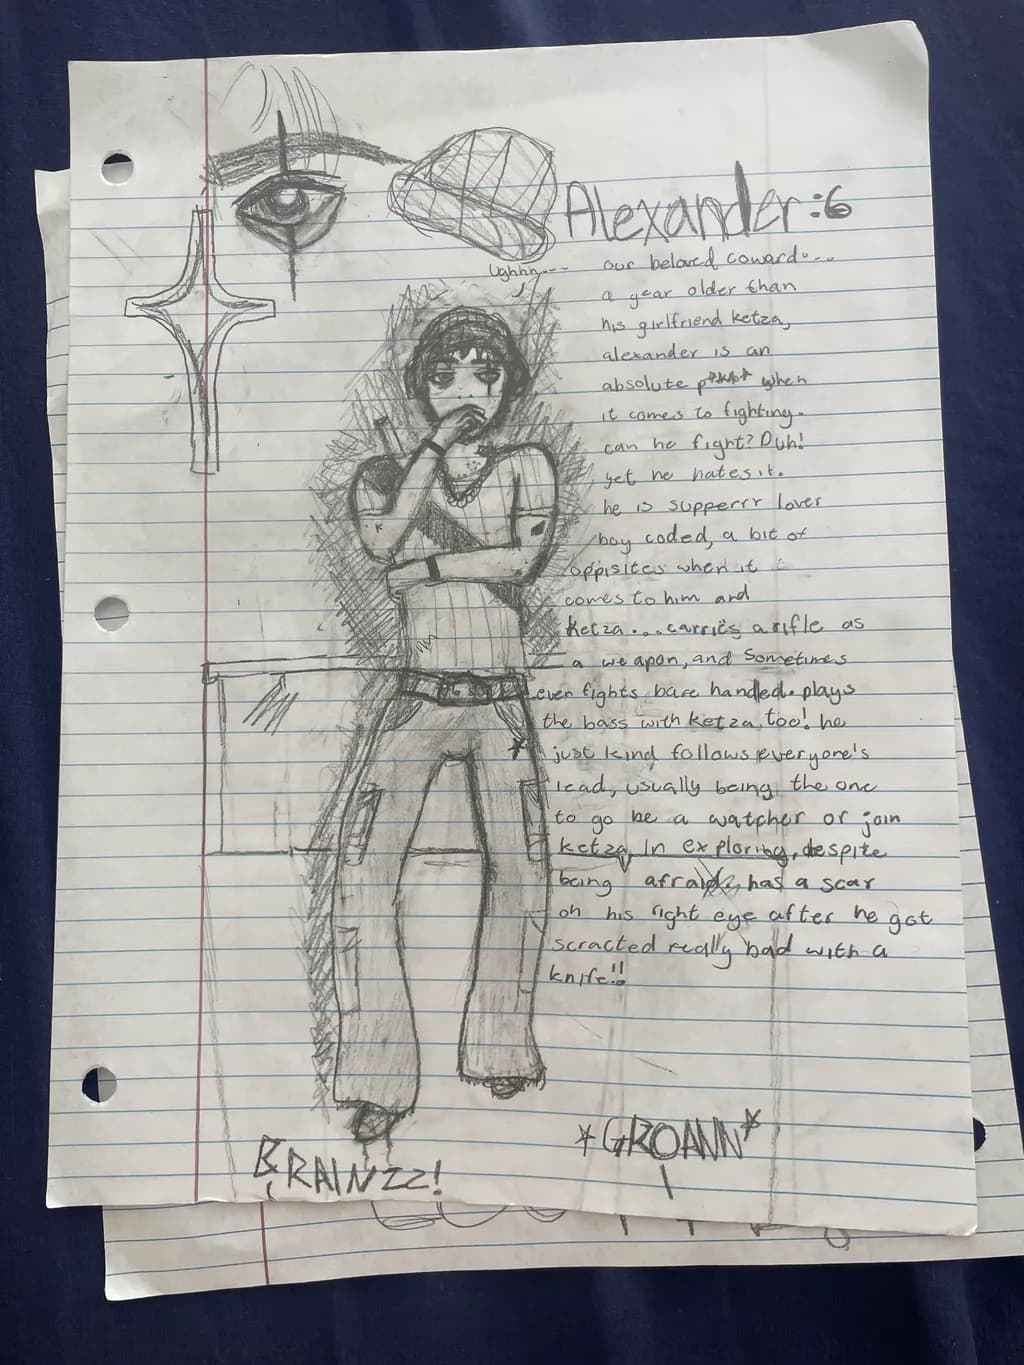 Alexander :6
Ughhh---
our beloved coward....
a year older than
his girlfriend ketza,
alexander is an
absolute p**** when
it comes to fighting.
can he fight? Duh!
yet he hates it.
he is supperrr lover
boy coded, a bit of
oppisites when it
comes to him and
ketza...carries a rifle as
a weapon, and sometimes
even fights bare handed. plays
the bass with ketza too! he
just kind follows everyone's
lead, usually being the one
to go be a watcher or join
ketza in exploring, despite
being afraid, has a scar
on his right eye after he got
scracted really bad with a
knife!!
*GROANN*
BRAINZZ!